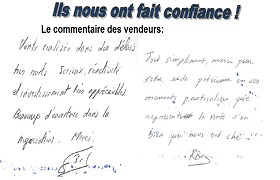 Ils nous ont fait confiance !
Le commentaire des vendeurs:
Vente réalisée dans des délais
très courts. Sérieux, réactivité
d'investissement très appréciables
Beaucoup d'aventure dans la
négociation. Merci
Tout simplement, merci pour
votre aide précieuse en ces
moments particuliers que
représentent la vente d'un
bien qui nous est cher